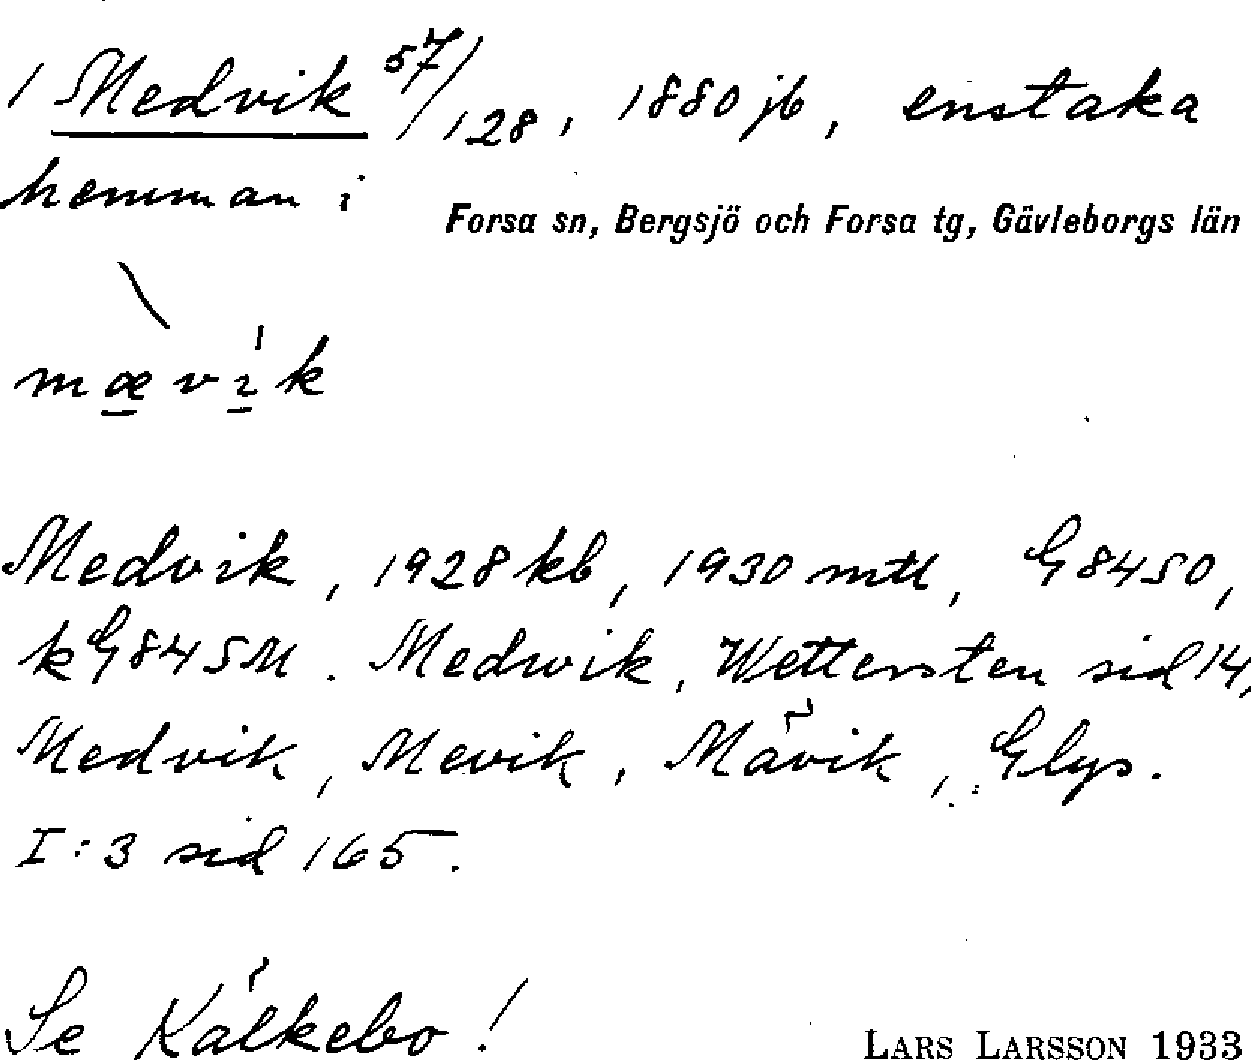 1 Medvik 57/128, 1880 jb, enstaka
hemman i
Forsa sn, Bergsjö och Forsa tg, Gävleborgs län
mævik
Medvik, 1928 kb, 1930 mtl, G84SO,
kG84SM. Medwik, Wettersten sid 14,
Medvik, Mevik, Mävik, Glys.
I:3 sid 165.
Se Kälkebo!
LARS LARSSON 1933